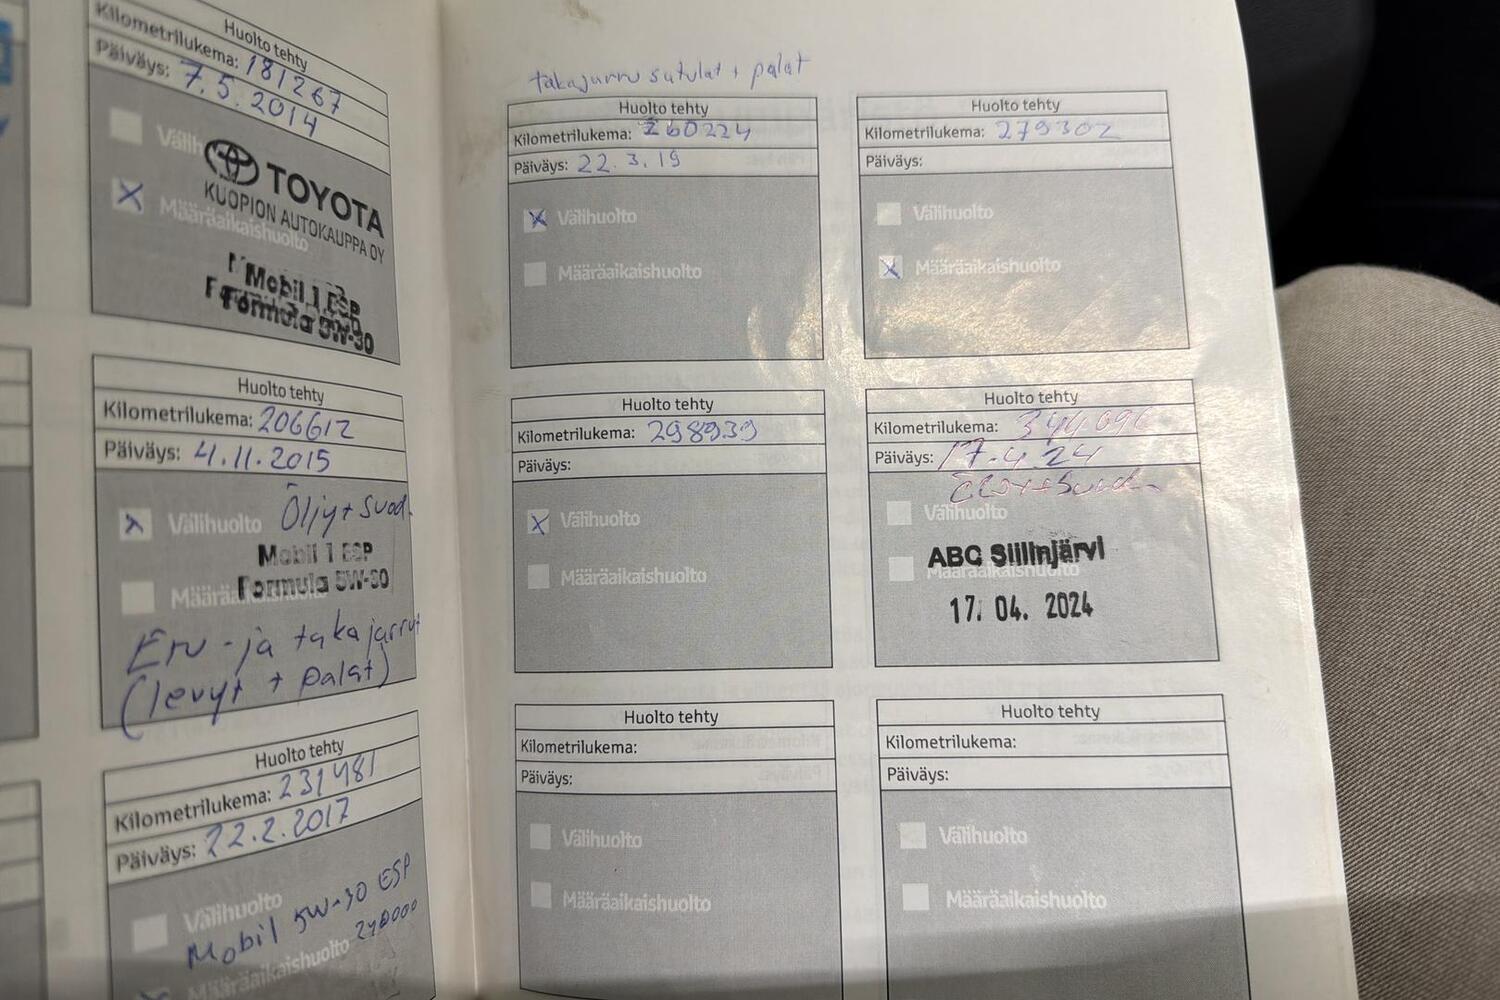 Huolto tehty
Kilometrilukema: 181267
Päiväys: 7.5.2014
Välih
TOYOTA
KUOPION AUTOKAUPPA OY
Määräaikaishuolto
Mobil 1 ESP
Formula 5W-30
Huolto tehty
Kilometrilukema: 206612
Päiväys: 4.11.2015
Välihuolto Öljy + Suod.
Mobil 1 ESP
Formula 5W-30
Etu - ja takajarrut
(levyt + palat)
Huolto tehty
Kilometrilukema: 231481
Päiväys: 22.2.2017
Välihuolto
Mobil 5W-30 ESP
Määräaikaishuolto 240000
takajarru satulat + palat
Huolto tehty
Kilometrilukema: 260224
Päiväys: 22.3.19
Välihuolto
Määräaikaishuolto
Huolto tehty
Kilometrilukema: 298939
Päiväys:
Välihuolto
Määräaikaishuolto
Huolto tehty
Kilometrilukema:
Päiväys:
Välihuolto
Määräaikaishuolto
Huolto tehty
Kilometrilukema: 279302
Päiväys:
Välihuolto
Määräaikaishuolto
Huolto tehty
Kilometrilukema: 344096
Päiväys: 17.4.24
Välihuolto
ABC Siilinjärvi
Määräaikaishuolto
17. 04. 2024
Huolto tehty
Kilometrilukema:
Päiväys:
Välihuolto
Määräaikaishuolto